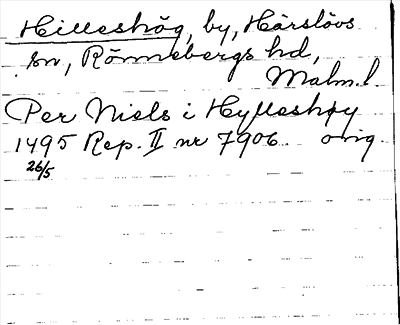 Hilleshög, by, Härslövs
sn, Rönnebergs hd,
Malm.l.
Per Niels i Hylleshøy
1495 Rep. II nr 7906 orig.
26/5